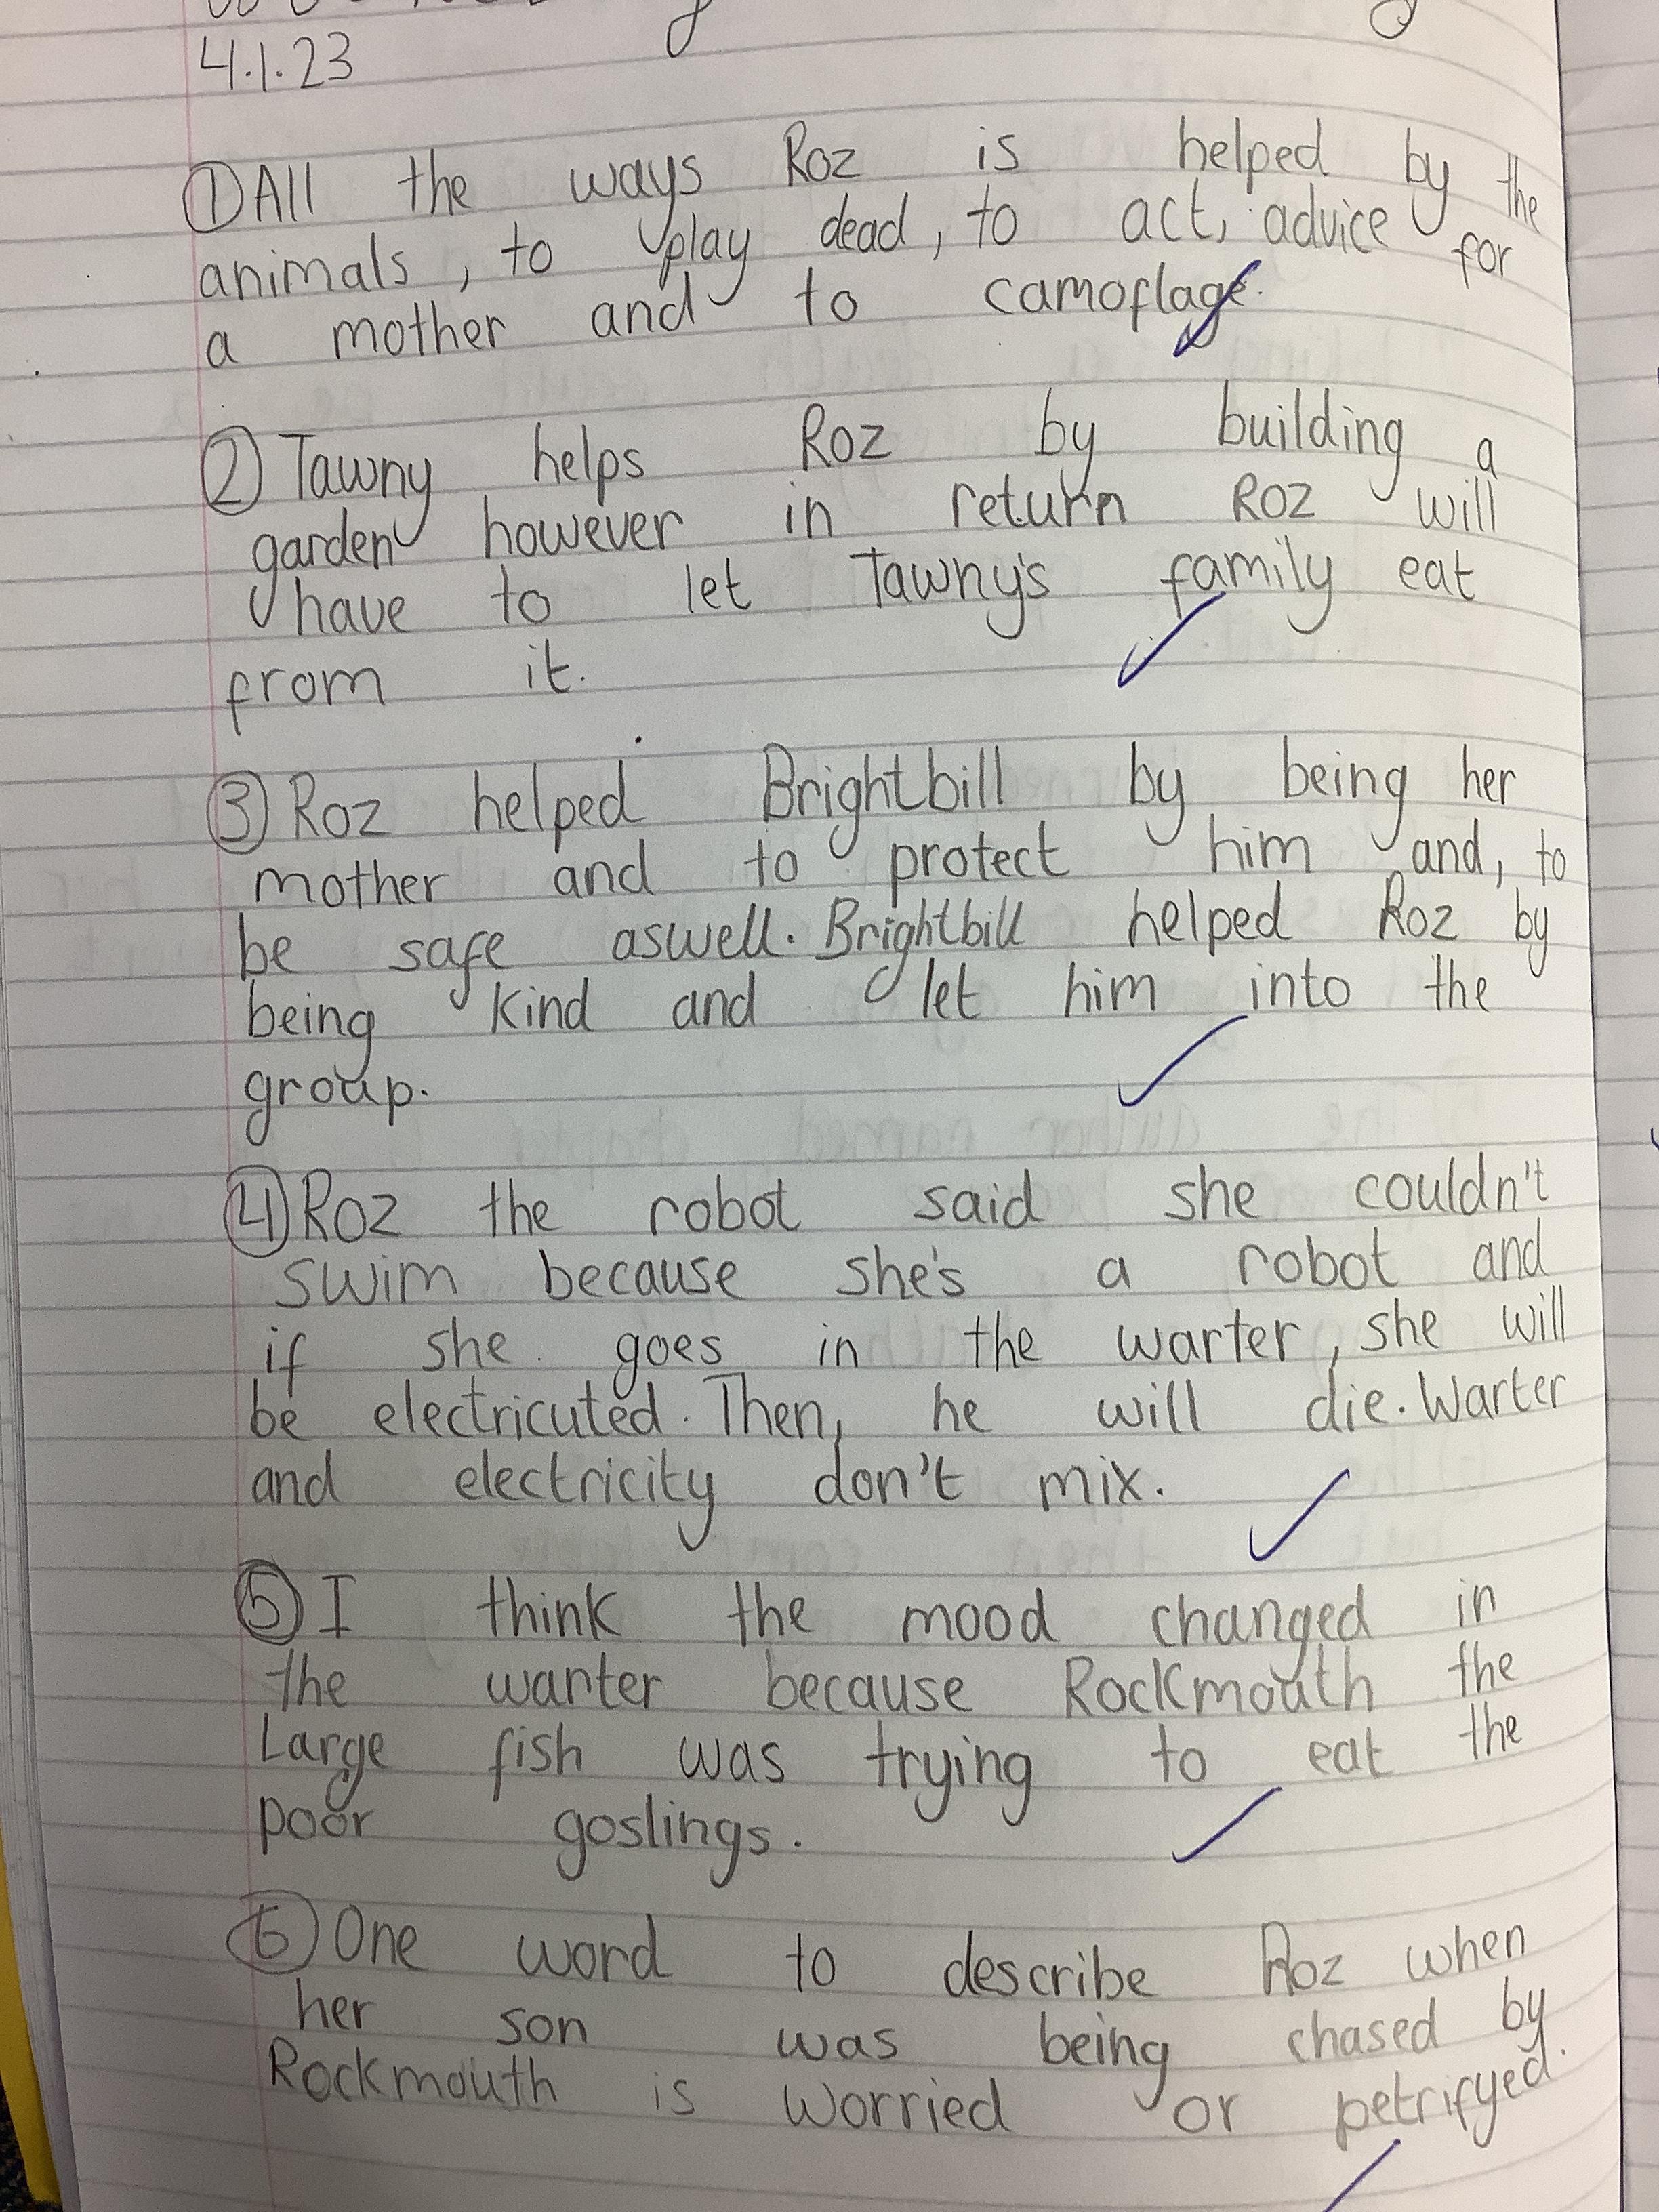 4.1.23
① All the ways Roz is helped by the
animals, to play dead, to act, advice for
a mother and to camoflage.
② Tawny helps Roz by building a
garden however in return Roz will
have to let Tawny's family eat
from it.
③ Roz helped Brightbill by being her
mother and to protect him and, to
be safe aswell. Brightbill helped Roz by
being kind and let him into the
group.
④ Roz the robot said she couldn't
swim because she's a robot and
if she goes in the warter, she will
be electricuted. Then, he will die. Warter
and electricity don't mix.
⑤ I think the mood changed in
the warter because Rockmouth the
Large fish was trying to eat the
poor goslings.
⑥ One word to describe Roz when
her son was being chased by
Rockmouth is worried or petrifyed.